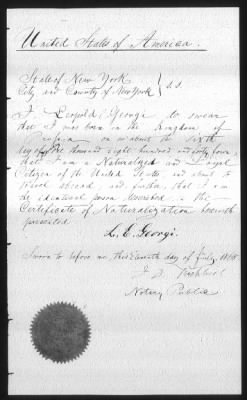 United States of America.
State of New York
City and County of New York } s.s.
I, Leopold Georgi do swear
that I was born in the Kingdom of
on or about the sixth
day of One thousand eight hundred and forty four,
that I am a Naturalized and Loyal
Citizen of the United States and about to
travel abroad, and further, that I am
the identical person described in the
Certificate of Naturalization herewith
presented
L. E. Georgi.
Sworn to before me, this Eleventh day of July, 1868
J. D.
Notary Public